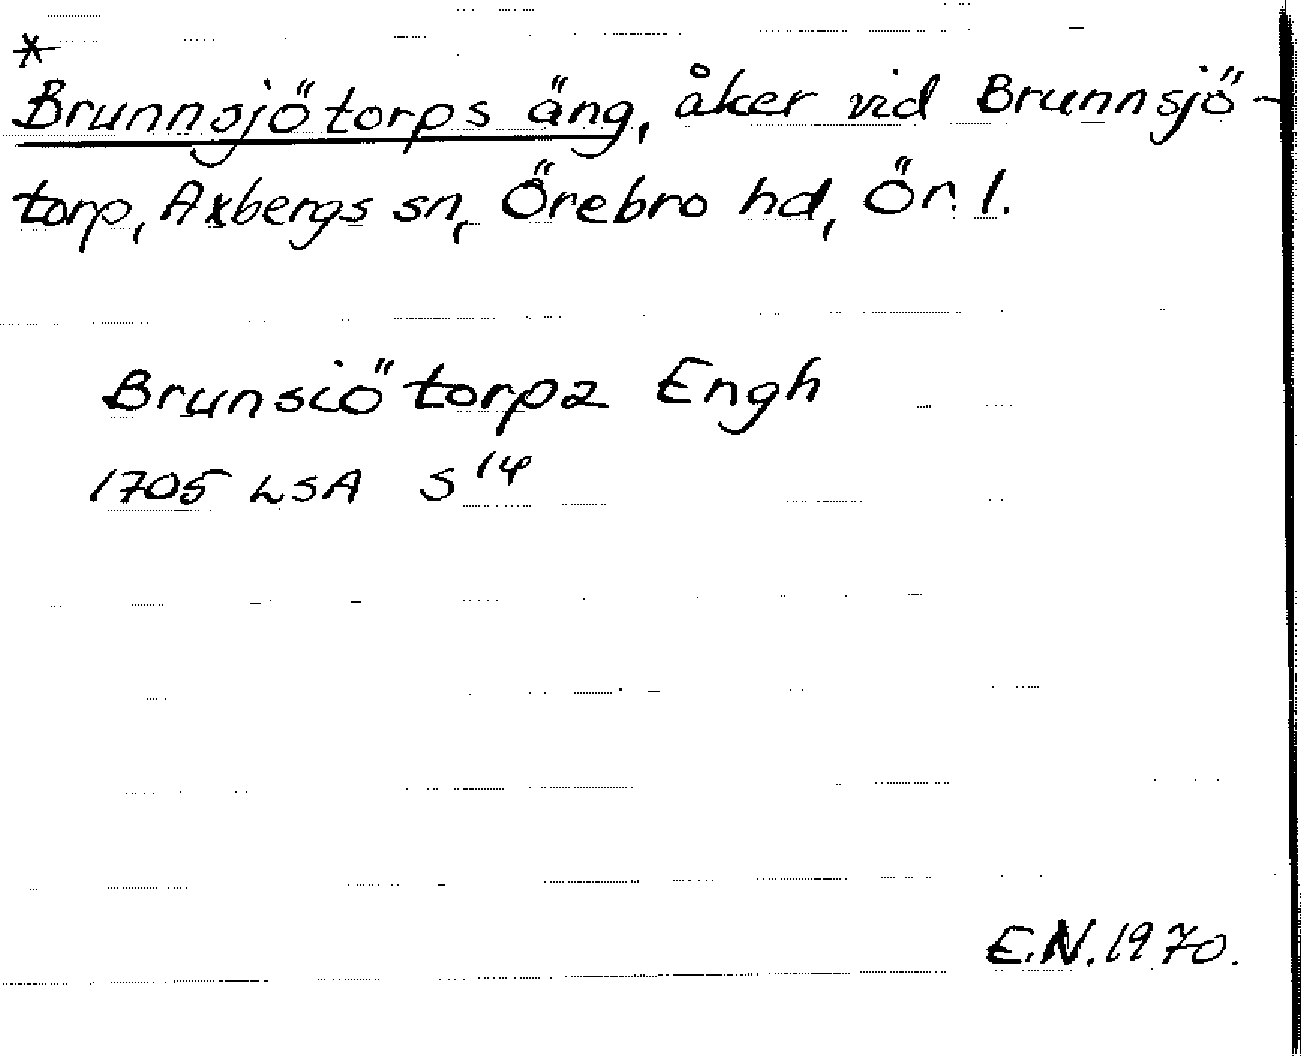 *
Brunnsjötorps äng, åker vid Brunnsjö-
torp, Axbergs sn, Örebro hd, Ör. l.
Brunsiötorpz Engh
1705 LSA S 14
E.N. 1970.